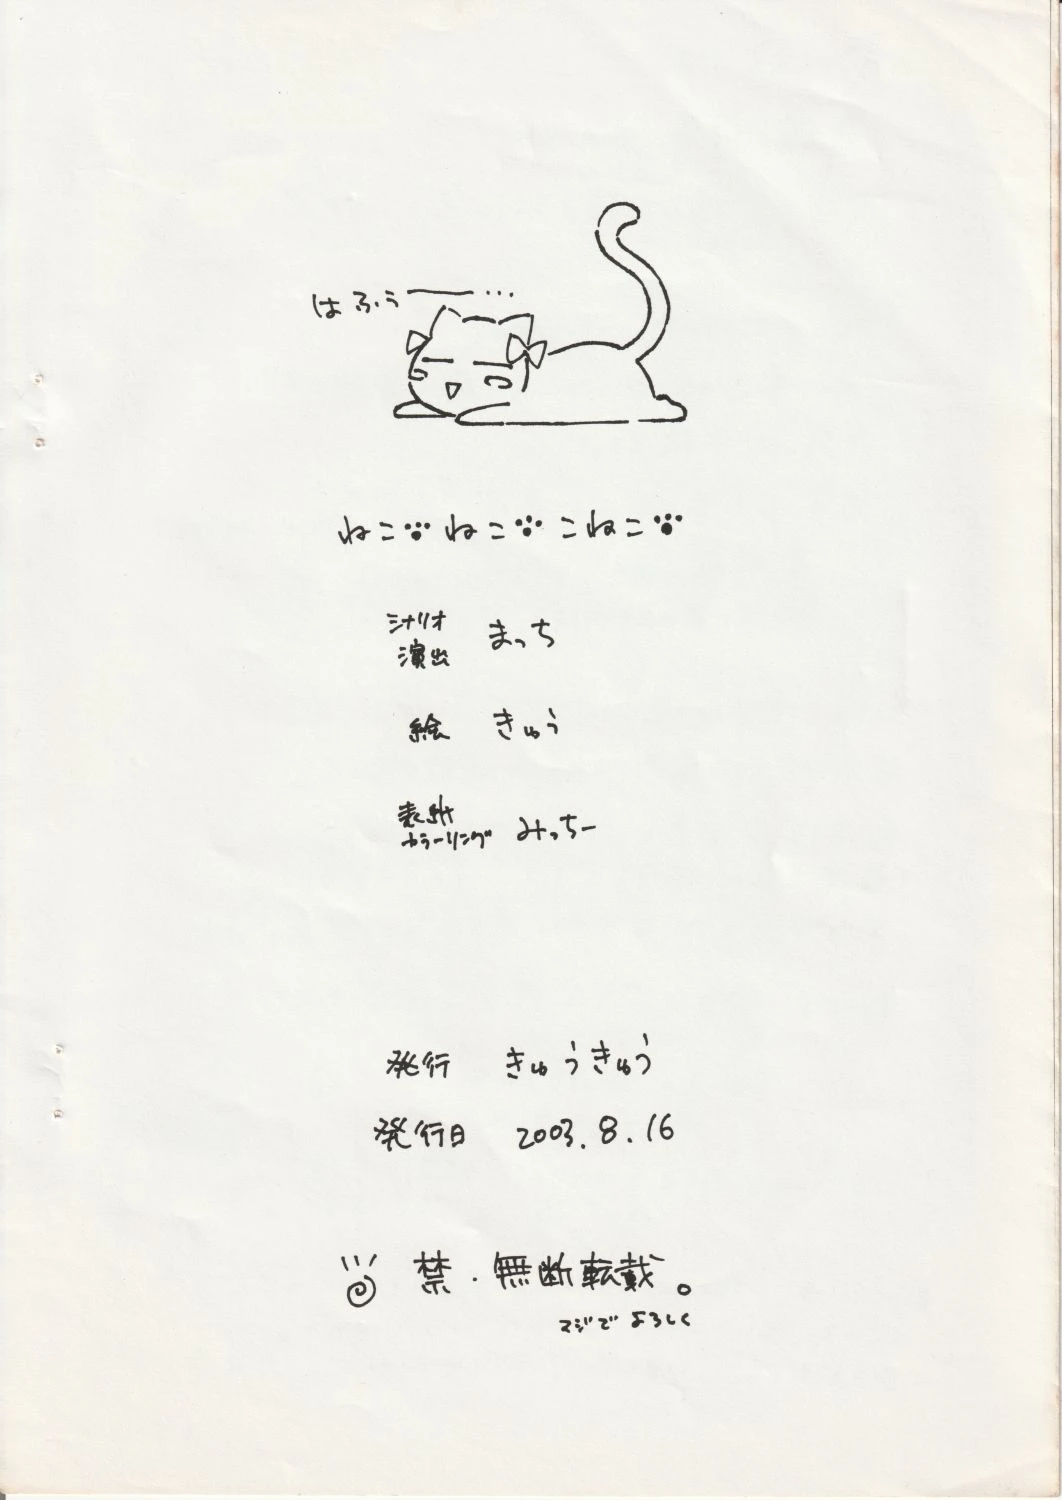 はふぅ――…
ねこ ねこ こねこ
シナリオ
演出 まっち
絵 きゅう
表紙
カラーリング みっちー
発行 きゅうきゅう
発行日 2003.8.16
禁・無断転載。
マジでよろしく